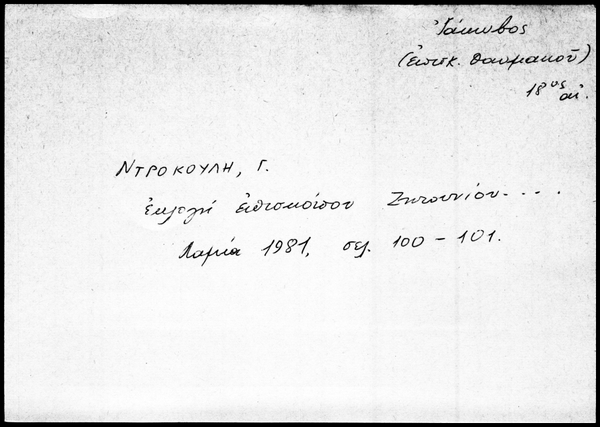 Ἰάκωβος
(ἐπισκ. Θαυμακοῦ)
18ος αἰ.
ΝΤΡΟΚΟΥΛΗ, Γ.
ἐκλογή ἐπισκόπου Ζητουνίου....
Λαμία 1981, σελ. 100 - 101.